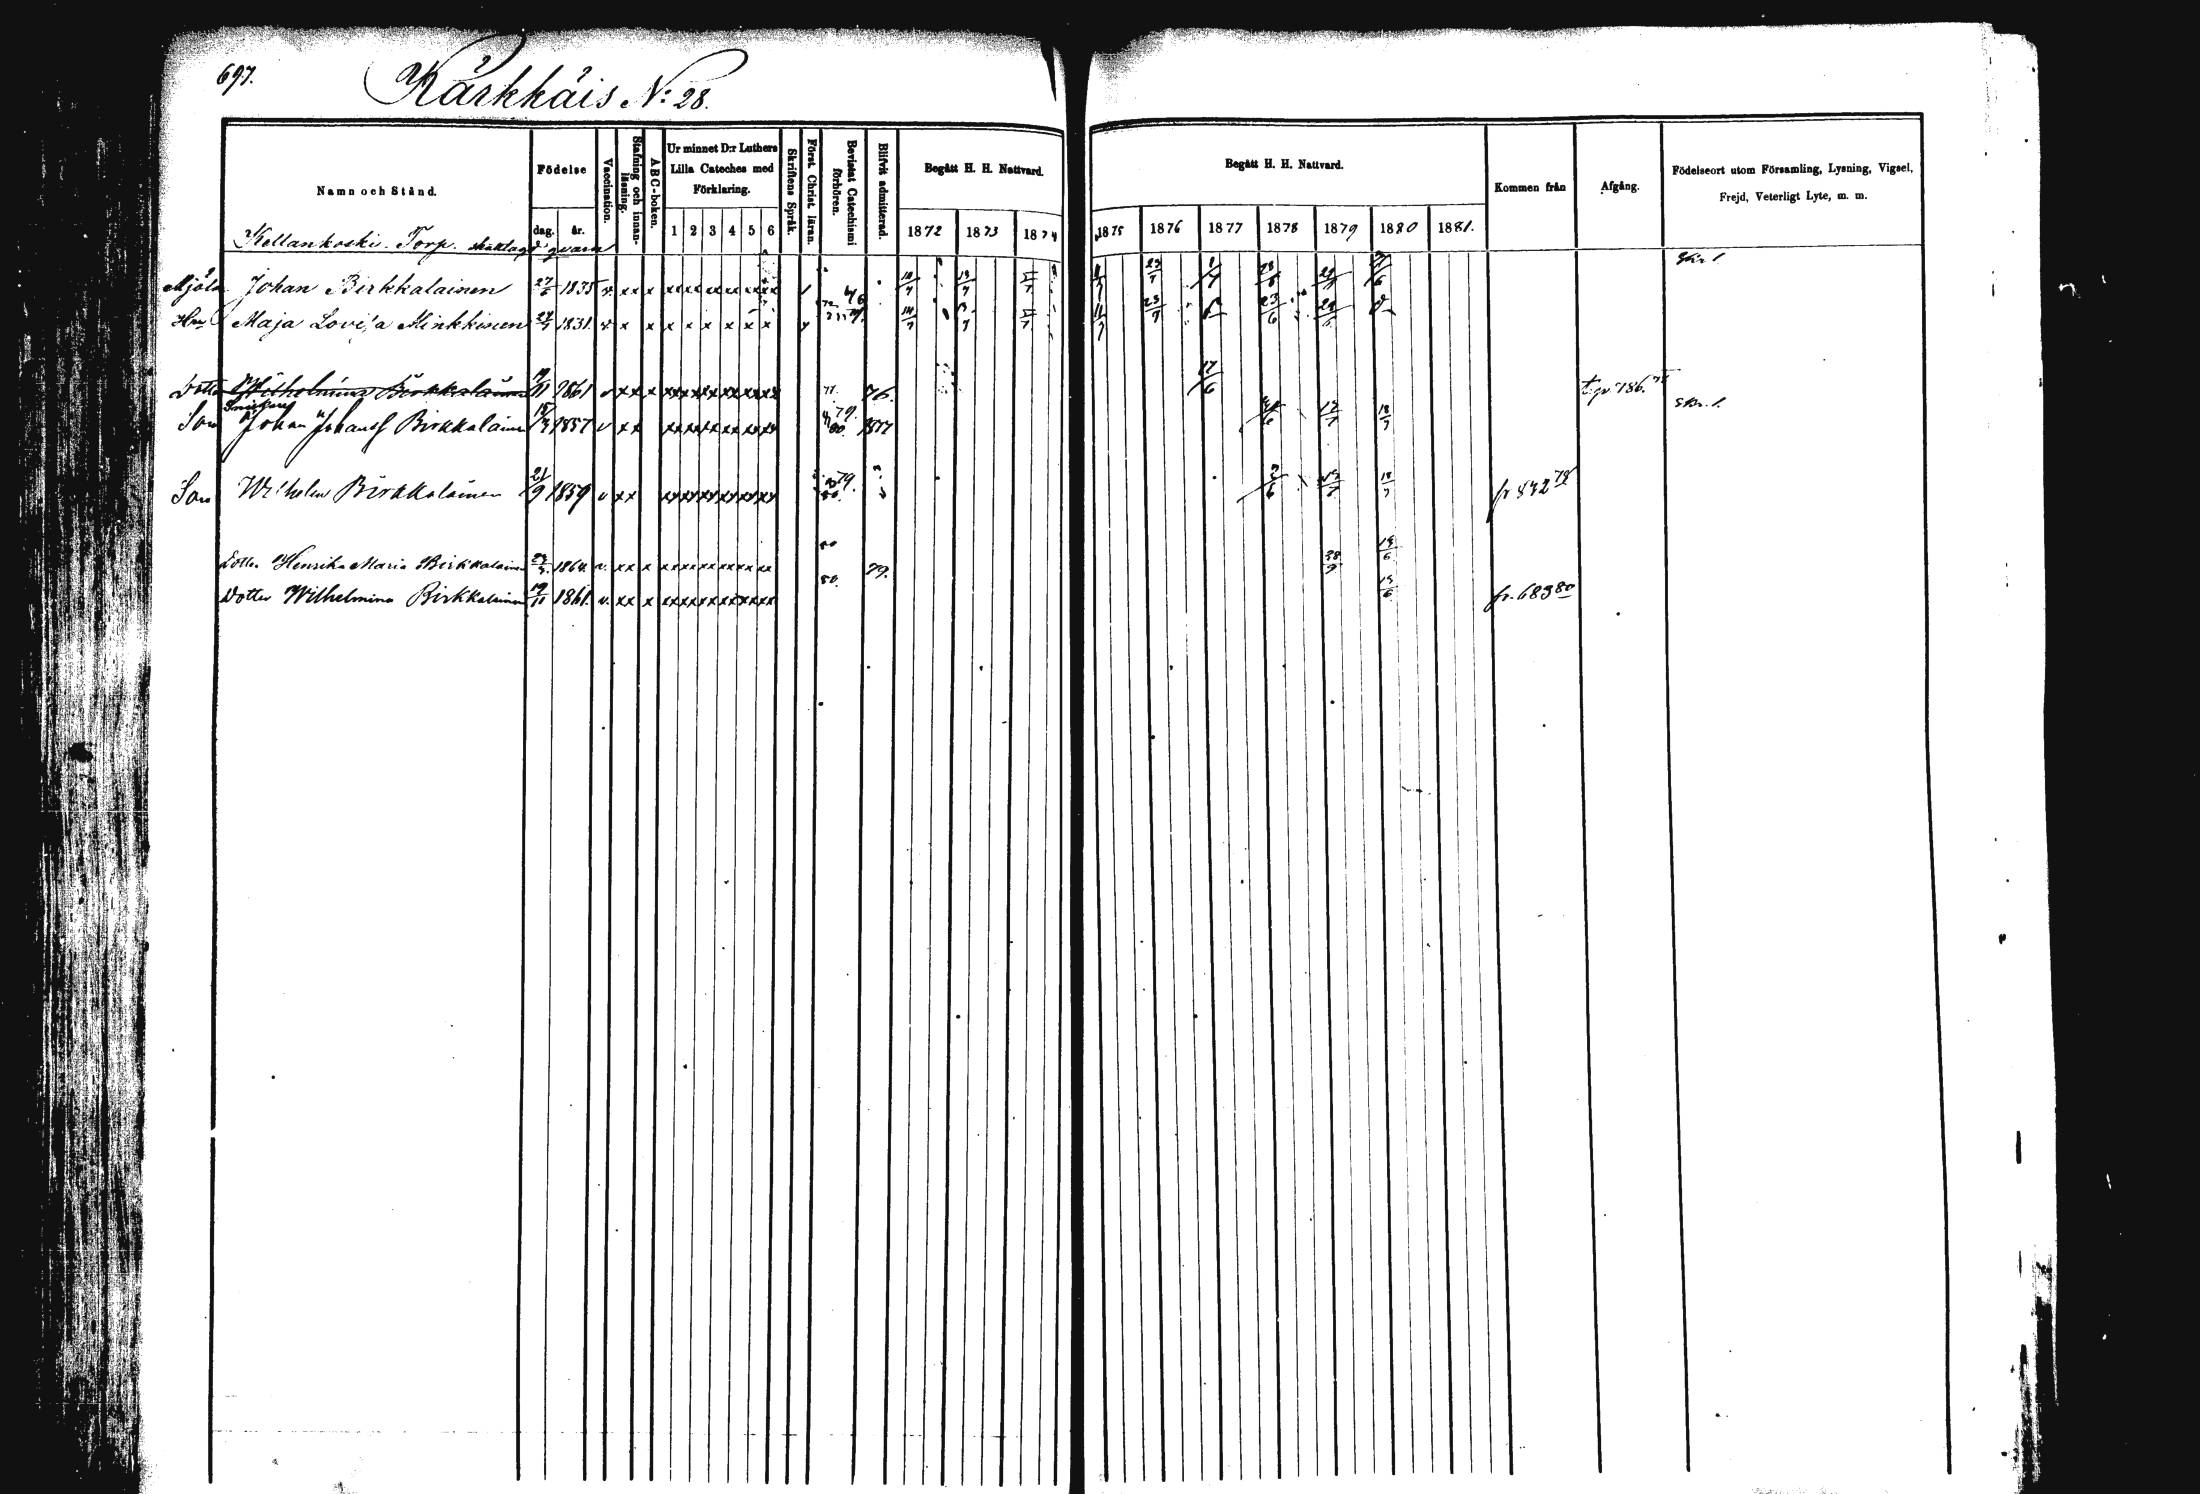 697.
Kärkkäis No: 28.
Namn och Stånd.
Födelse
dag. år.
Vaccination.
Stafning och innanläsning.
ABC-boken.
Ur minnet D:r Luthers Lilla Cateches med Förklaring.
1 2 3 4 5 6
Skriftens Språk.
Först. Christ. läran.
Bevistat Catechismi förhören.
Blifvit admitterad.
Begått H. H. Nattvard.
1872 1873 1874
Begått H. H. Nattvard.
1875 1876 1877 1878 1879 1880 1881.
Kommen från
Afgång.
Födelseort utom Församling, Lysning, Vigsel, Frejd, Veterligt Lyte, m. m.
Kellankoski Torp. skattlagd qvarn
Johan Birkkalainen 27/6 1835 v. xx x xx xx xx xx xx xx 10/7 13/7 23/7 Skr. 1.
Hu Maja Lovisa Minkkinen 1831. v x x x x x x x x 23/7 23/6
Dotter Wilhelmina Birkkalainen 19/11 1861 v xx x xx xx xx xx xx xx 77. 76. 17/6
Son Johan Johansf Birkkalainen 1857 v xx xx xx xx xx xx xx 79. 80. 1877 18/7 Skr. 1.
Son Wilhelm Birkkalainen 21/9 1859 v xx xx xx xx xx xx xx 79. 80. 18/7 fr 842 79
Dotter Henrika Maria Birkkalainen 1864. v. xx x xx xx xx xx xx xx 80 79. 28/9 13/6
Dotter Wilhelmina Birkkalainen 19/11 1861. v. xx x xx xx xx xx xx xx 80. 13/6 fr. 683 80